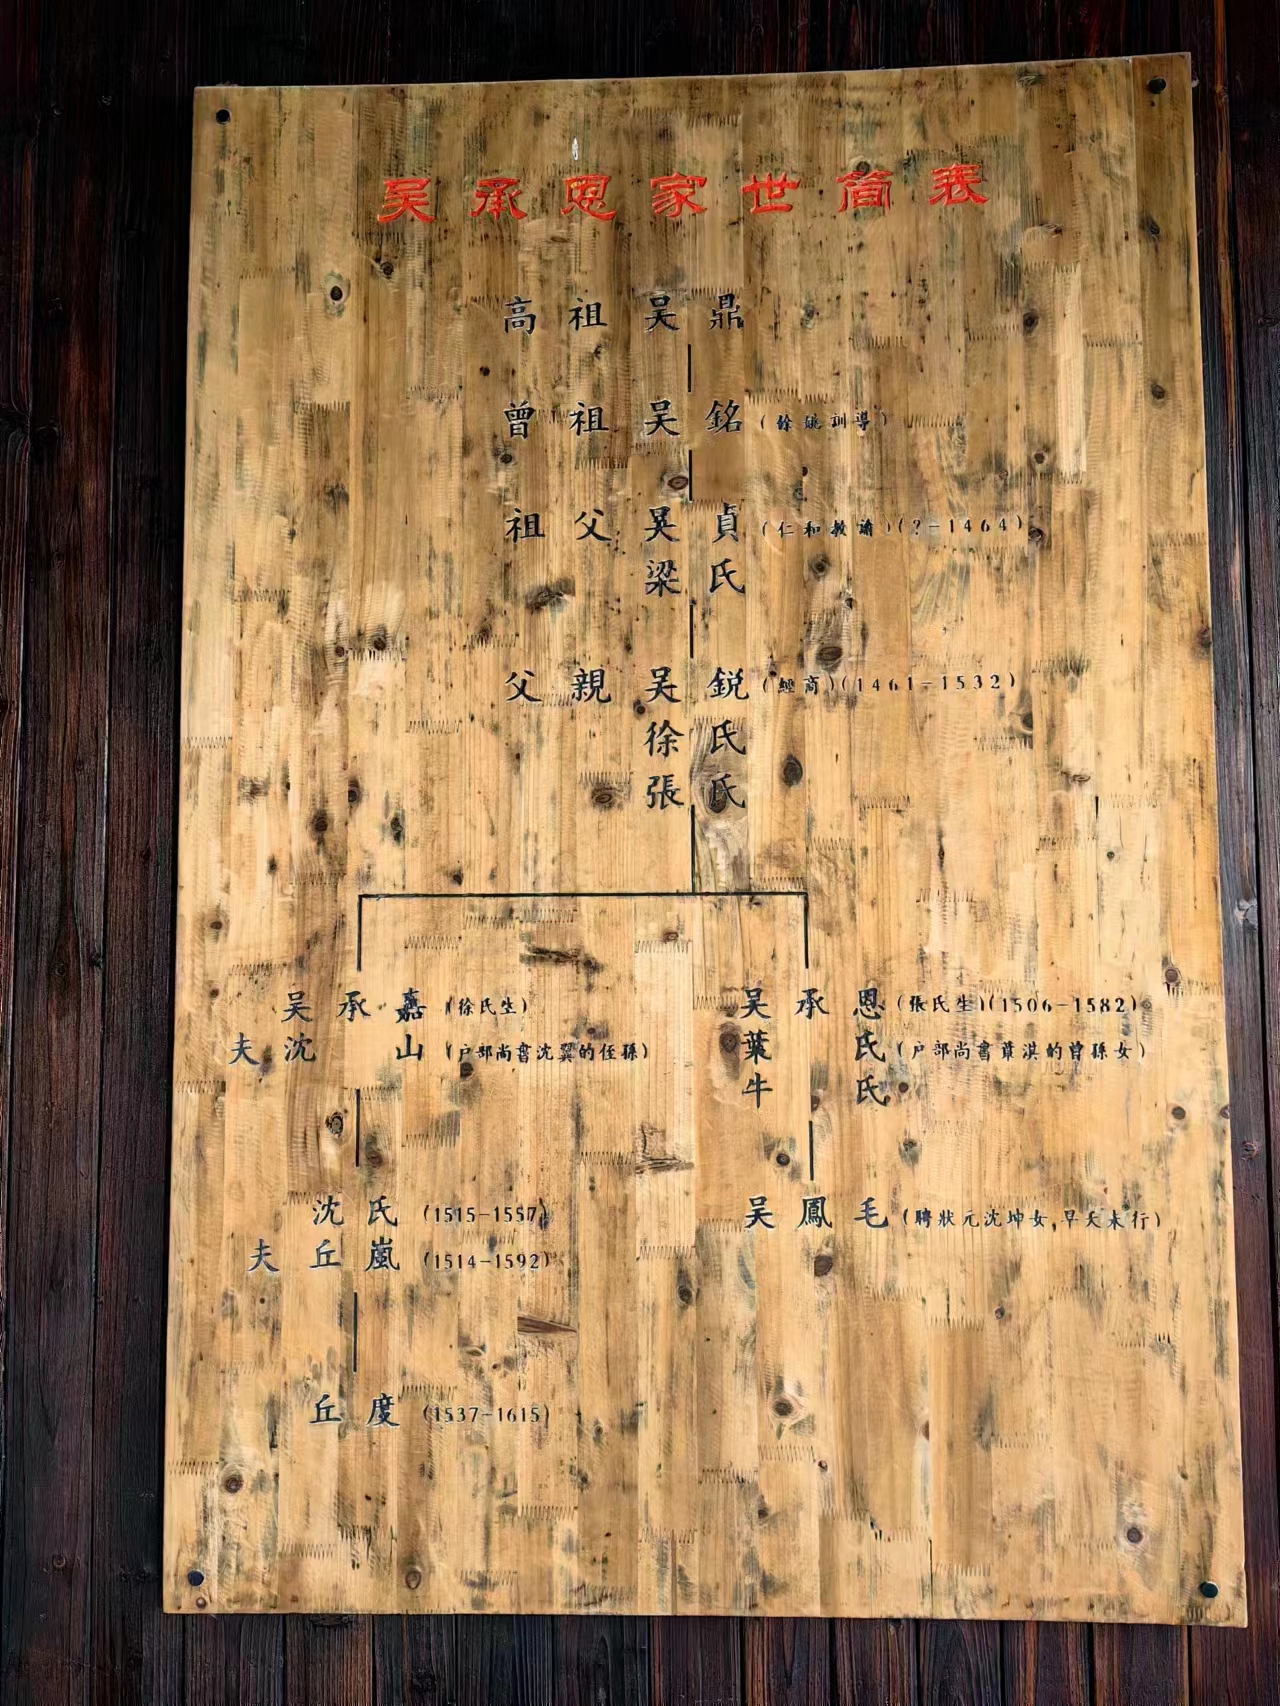 吴承恩家世簡表
高祖吴鼎
曾祖吴銘(餘姚訓導)
祖父吴貞(仁和教諭)(?-1464)
梁氏
父親吴銳(經商)(1461-1532)
徐氏
張氏
吴承嘉(徐氏生)
夫沈山(户部尚書沈翼的侄孫)
吴承恩(張氏生)(1506-1582)
葉氏(户部尚書葉淇的曾孫女)
牛氏
沈氏(1515-1557)
夫丘嵐(1514-1592)
吴鳳毛(聘狀元沈坤女,早夭未行)
丘度(1537-1615)